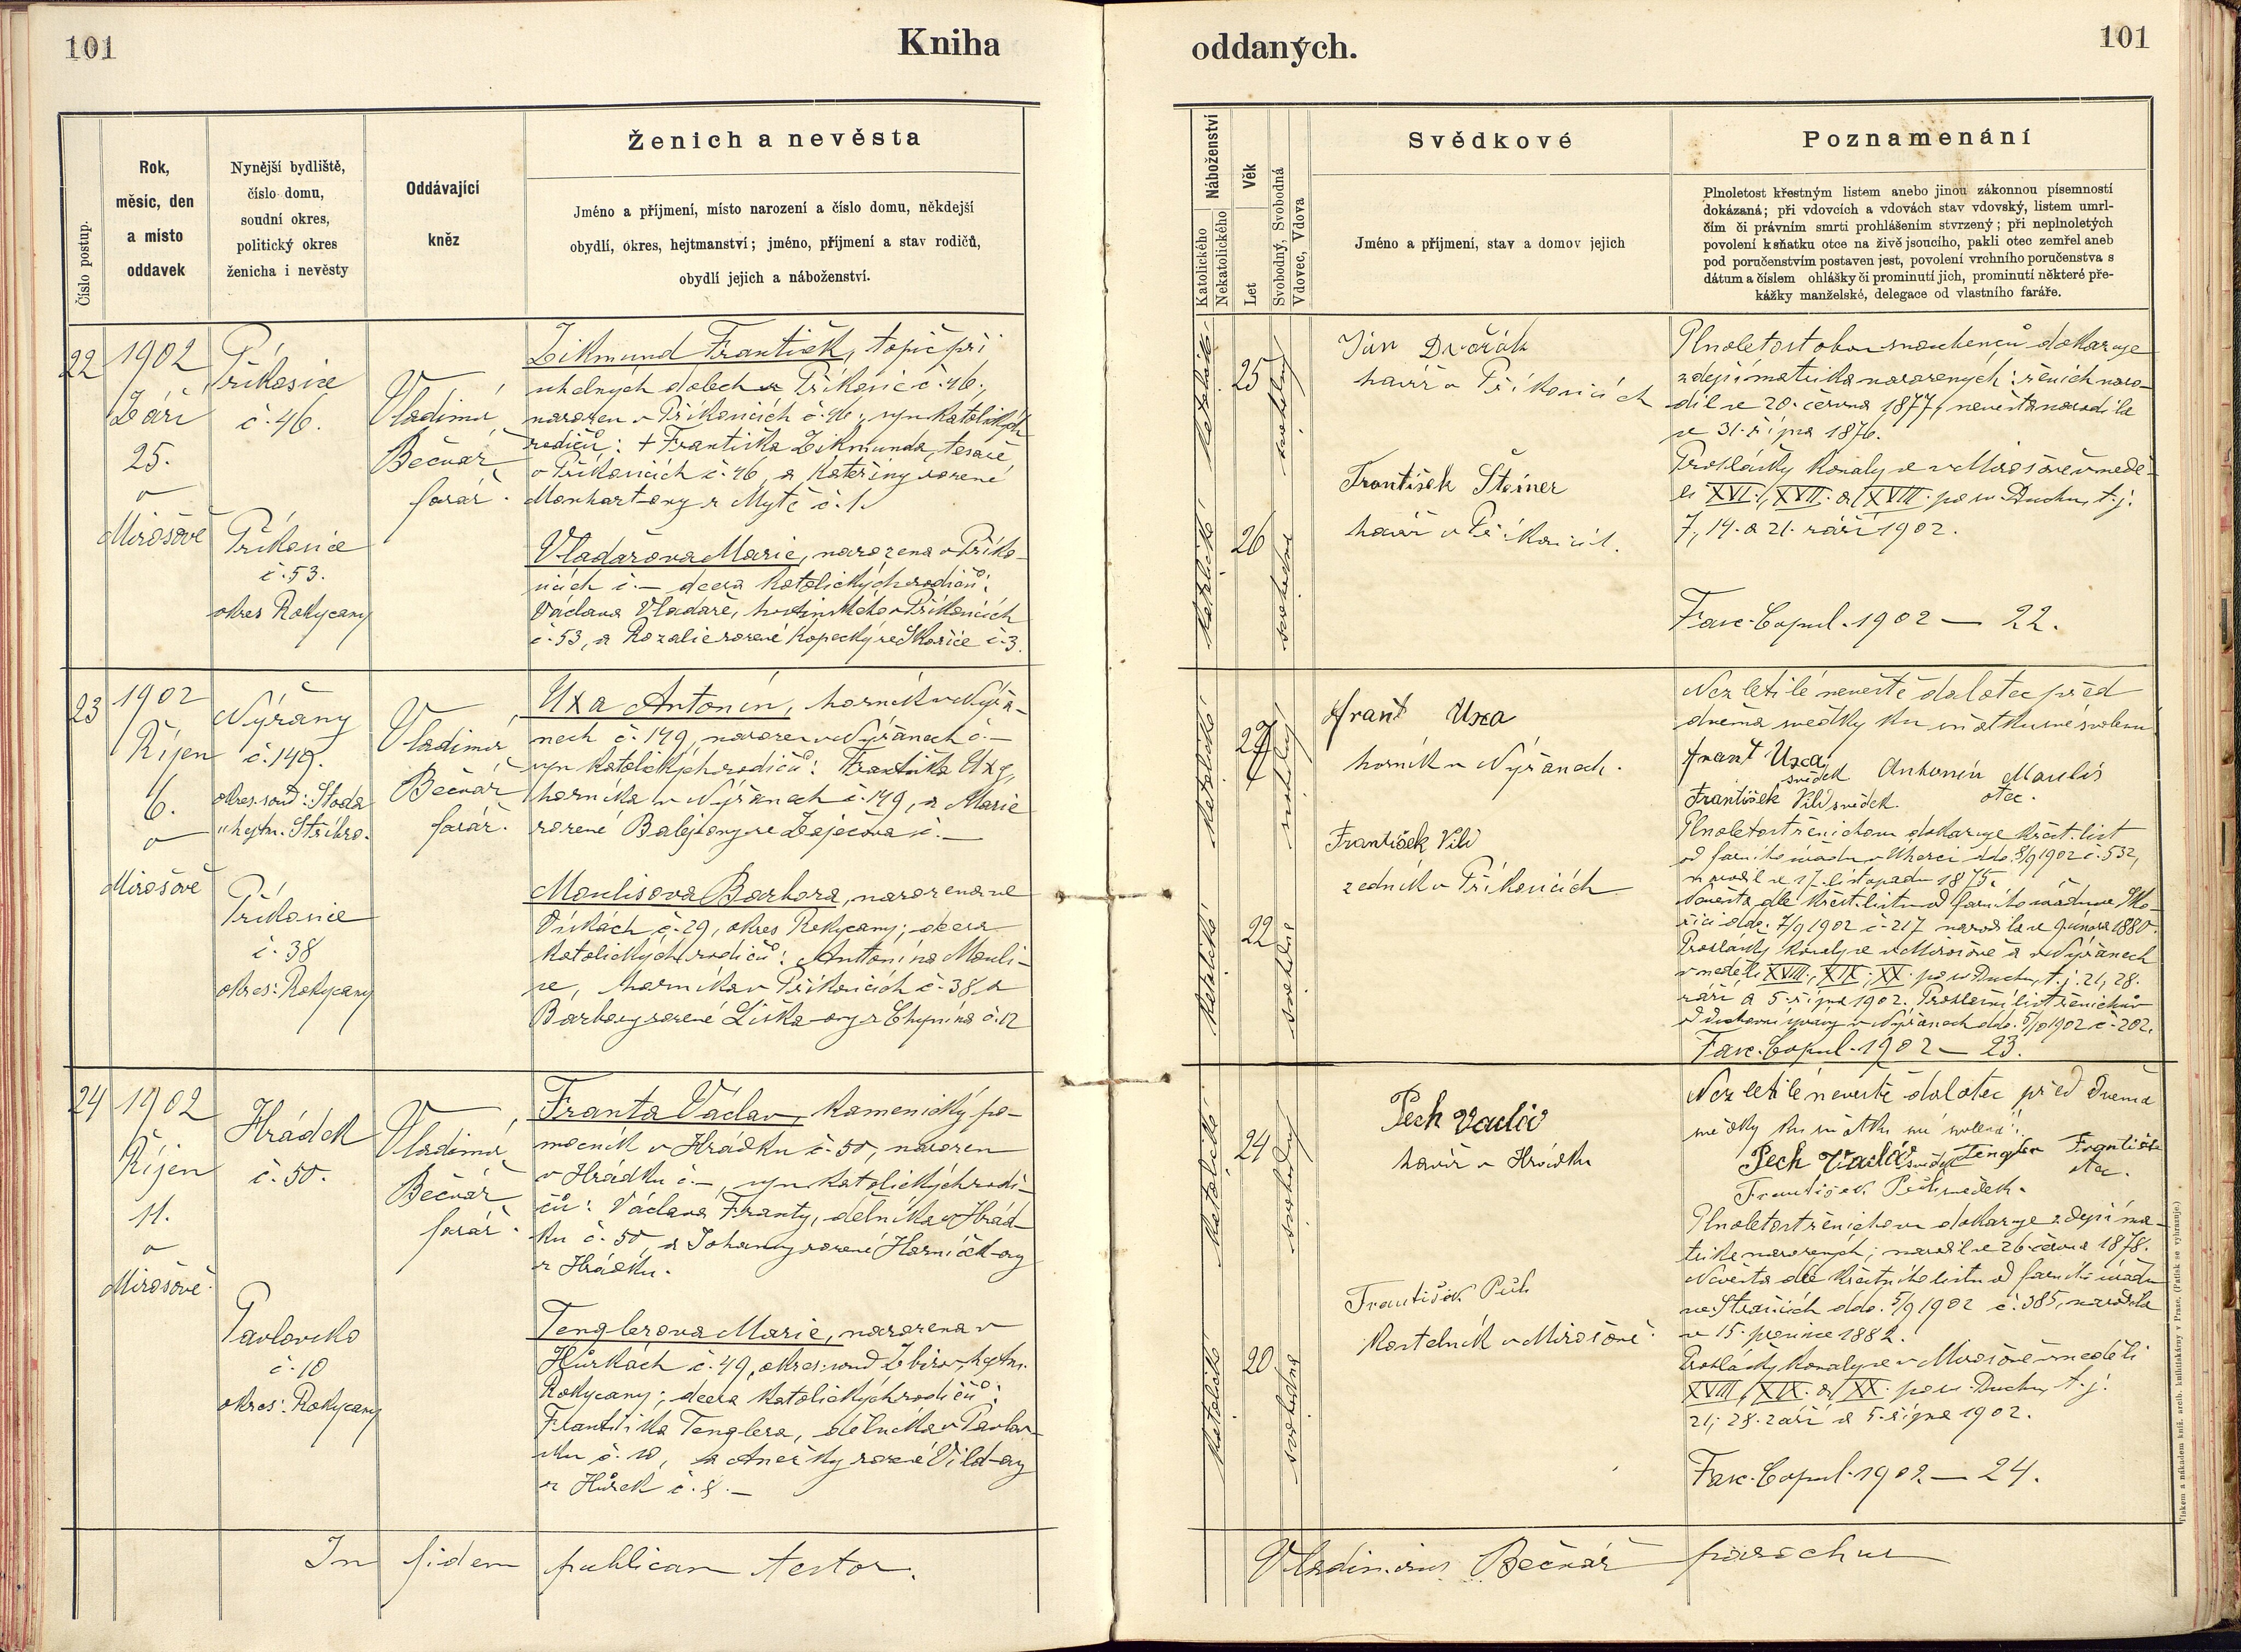 101
Kniha
oddaných.
101
Číslo postup.
Rok,
měsíc, den
a místo
oddavek
Nynější bydliště,
číslo domu,
soudní okres,
politický okres
ženicha i nevěsty
Oddávající
kněz
Ženich a nevěsta
Jméno a příjmení, místo narození a číslo domu, někdejší
obydlí, okres, hejtmanství; jméno, příjmení a stav rodičů,
obydlí jejich a náboženství.
Náboženství
Katolického
Nekatolického
Věk
Let
Svobodný, Svobodná
Vdovec, Vdova
Svědkové
Jméno a příjmení, stav a domov jejich
Poznamenání
Plnoletost křestným listem anebo jinou zákonnou písemností
dokázaná; při vdovcích a vdovách stav vdovský, listem umrl-
čím či právním smrti prohlášením stvrzený; při neplnoletých
povolení k sňatku otce na živě jsoucího, pakli otec zemřel aneb
pod poručenstvím postaven jest, povolení vrchního poručenstva s
dátum a číslem ohlášky či prominutí jich, prominutí některé pře-
kážky manželské, delegace od vlastního faráře.
22
1902
Září
25.
v
Mirošově
Příkosice
č. 46.
Příkosice
č. 53.
okres Rokycany
Vladimír
Bečvář,
farář.
Zikmund František, topič při
uhelných dolech z Příkosic č. 46,
narozen v Příkosicích č. 46; syn katolických
rodičů: + Františka Zikmunda, tesaře
v Příkosicích č. 46, a Kateřiny rozené
Monhart-ovy z Mytě č. 1.
Vladařova Marie, narozena v Příko-
sicích č. — dcera katolických rodičů:
Václava Vladaře, hostinského v Příkosicích
č. 53, a Rozalie rozené Kopecký ze Skořice č. 3.
katolické
25
svobodný
katolické
26
svobodná
Ján Dvořák
havíř v Příkosicích
František Šteiner
havíř v Příkosicích.
Plnoletost obou snoubenců dokazuje
zdejší matrika narozených: ženich naro-
dil se 20. června 1877, nevěsta narodila
se 31. října 1876.
Prohlášky konaly se v Mirošově v nedě-
li XVI., XVII. a XVIII. po sv. Duchu, t. j.
7., 14. a 21. září 1902.
Fasc. Copul. 1902 — 22.
23
1902
Říjen
6.
v
Mirošově
Nýřany
č. 149.
okres. soud: Stoda
" hejtm. Stříbro.
Příkosice
č. 38
okres: Rokycany
Vladimír
Bečvář
farář.
Uxa Antonín, horník v Nýřa-
nech č. 149, narozen v Nýřanech č. —
syn katolických rodičů: Františka Uxy,
horníka v Nýřanech č. 149, a Marie
rozené Balejovy ze Zaječova č. —
Moulisova Barbora, narozena ve
Vískách č. 29, okres Rokycany; dcera
katolických rodičů: Antonína Mouli-
se, horníka v Příkosicích č. 38, a
Barbory rozené Liška-ovy z Chynína č. 12
katolické
27
svobodný
katolické
22
svobodná
Frant Uxa
horník v Nýřanech.
František Vild
zedník v Příkosicích
Nezletilé nevěstě dal otec před
dvěma svědky ku sňatku své svolení
Frant Uxa
svědek
Antonín Moulis
otec.
František Vild svědek.
Plnoletost ženichovu dokazuje křest. list
od farního úřadu v Uherci ddo. 8/9 1902 č. 532,
narodil se 17. listopadu 1875.
Nevěsta dle křest. listu od farního úřadu ve Sko-
řici ddo. 7/9 1902 č. 217 narodila se 9. února 1880.
Prohlášky konaly se v Mirošově a v Nýřanech
v neděli XVIII., XIX., XX. po sv. Duchu, t. j. 21., 28.
září a 5. října 1902. Prohlášní list ženichův
od duchovní správy v Nýřanech ddo. 5/10 1902 č. 202.
Fasc. Copul. 1902 — 23.
24
1902
Říjen
11.
v
Mirošově.
Hrádek
č. 50.
Pavlovsko
č. 10
okres: Rokycany
Vladimír
Bečvář
farář.
Franta Václav, kamenický po-
mocník v Hrádku č. 50, narozen
v Hrádku č. —, syn katolických rodi-
čů: Václava Franty, dělníka v Hrád-
ku č. 50, a Johanny rozené Horníček-ovy
z Hrádku.
Tenglerova Marie, narozena v
Hůrkách č. 49, okres. soud Zbirov, hejtm.
Rokycany; dcera katolických rodičů:
Františka Tenglera, dělníka v Pavlov-
sku č. 10, a Anežky rozené Vild-ovy
z Hůrek č. 8. —
katolické
24
svobodný
katolické
20
svobodná
Pech Václav
havíř v Hrádku
František
Kostelník v Mirošově.
Nezletilé nevěstě dal otec před dvěma
svědky ku sňatku své svolení:
Pech Václav svědek Tengler František
otec.
František svědek.
Plnoletost ženichovu dokazuje zdejší ma-
trika narozených; narodil se 26. června 1878.
Nevěsta dle křestního listu od farního úřadu
ve Strašicích ddo. 5/9 1902 č. 385, narodila
se 15. prosince 1882.
Prohlášky konaly se v Mirošově v neděli
XVIII., XIX. a XX. po sv. Duchu, t. j.
21., 28. září a 5. října 1902.
Fasc. Copul. 1902. — 24.
In fidem publicam testor.
Vladimirus Bečvář parochus
Tiskem a nákladem kníž. arcib. knihtiskárny v Praze. (Patisk se vyhrazuje.)